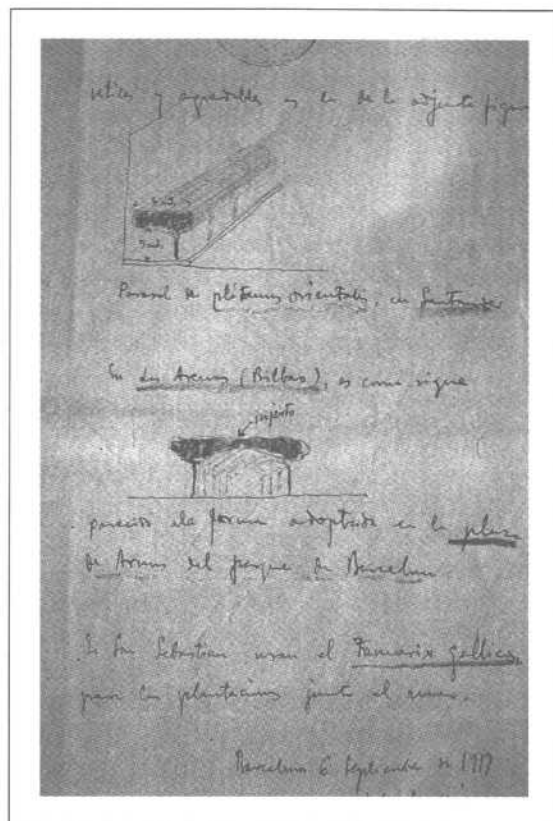 y agradable es la de la adjunta figura
5 m.
3 m.
Parasol de plátanus orientalis, en Santander
En Las Arenas (Bilbao), es como sigue
injerto
parecido a la forma adoptada en la plaza
de Armas del parque de Barcelona.
En San Sebastian usan el Tamarix gallica,
para las plantaciones junto al
Barcelona 6 Septiembre de 1917